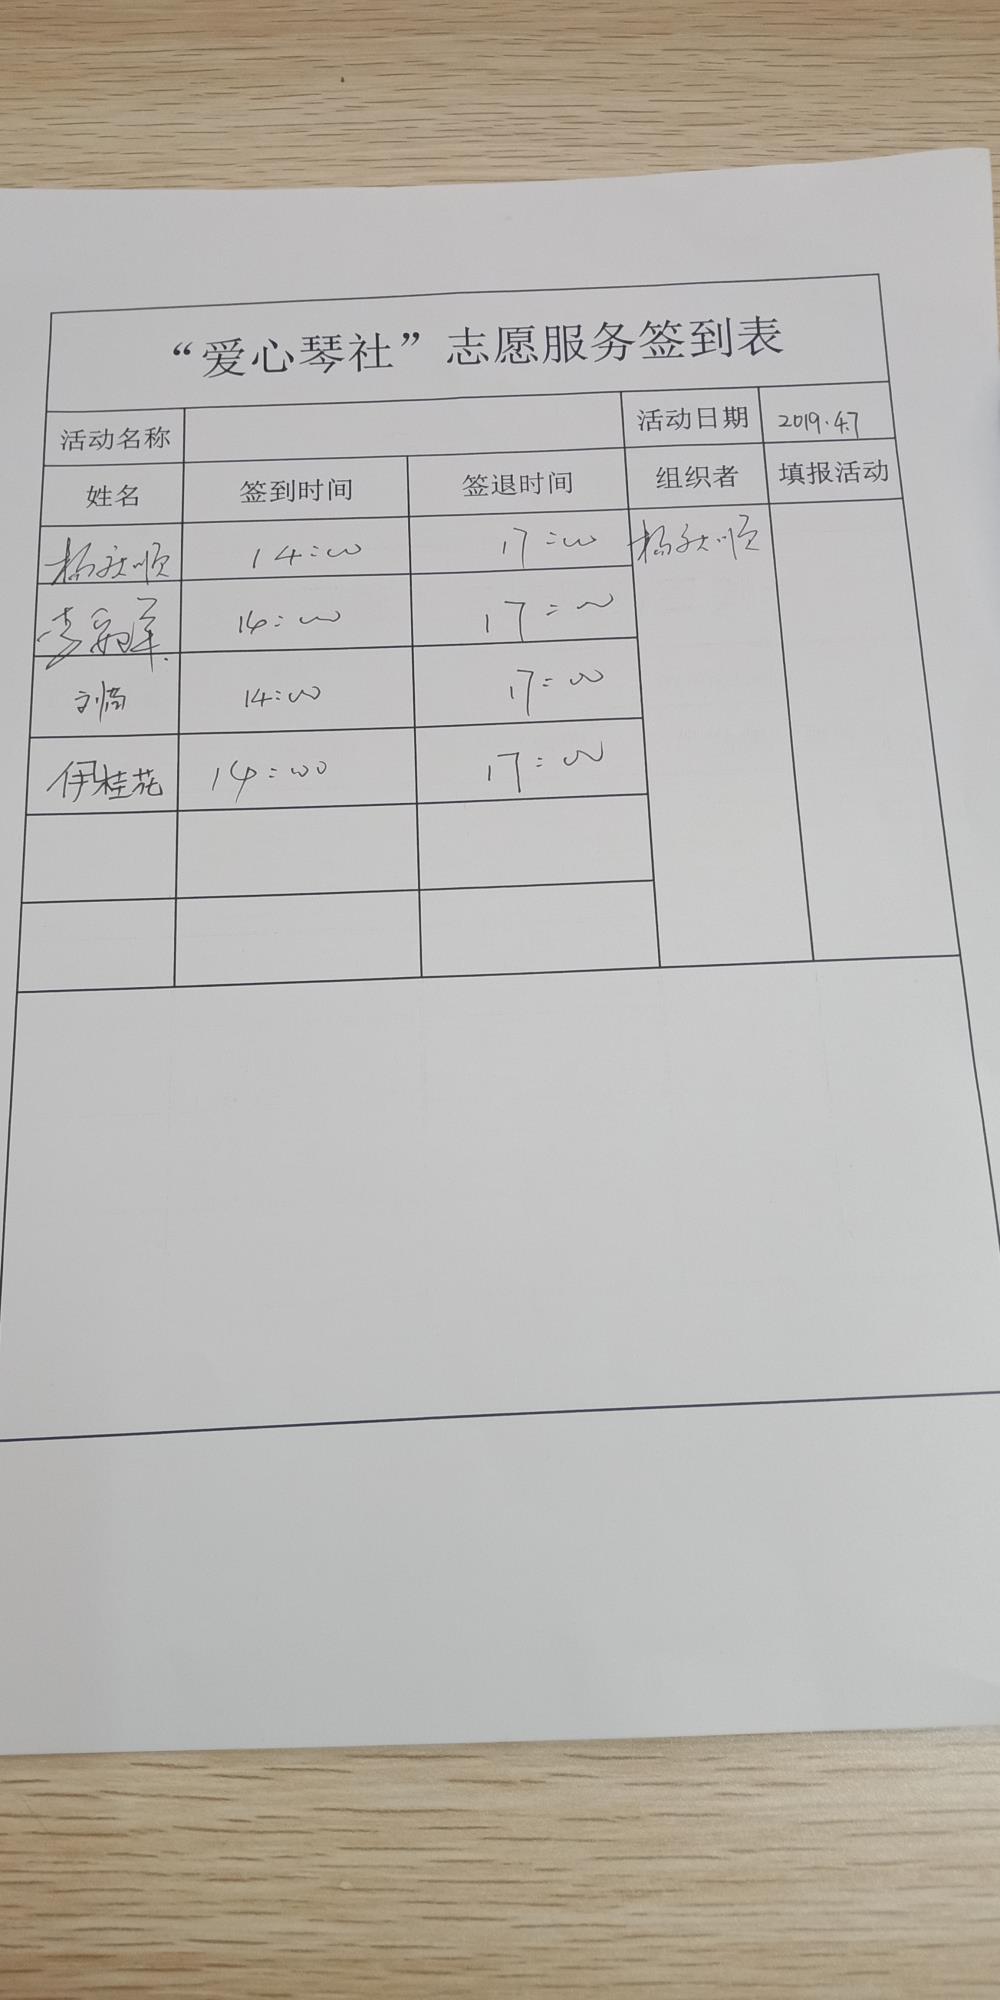 “爱心琴社”志愿服务签到表
活动名称 活动日期 2019.4.7
姓名 签到时间 签退时间 组织者 填报活动
14:00 17:00
14:00 17:00
14:00 17:00
伊桂花 14:00 17:00